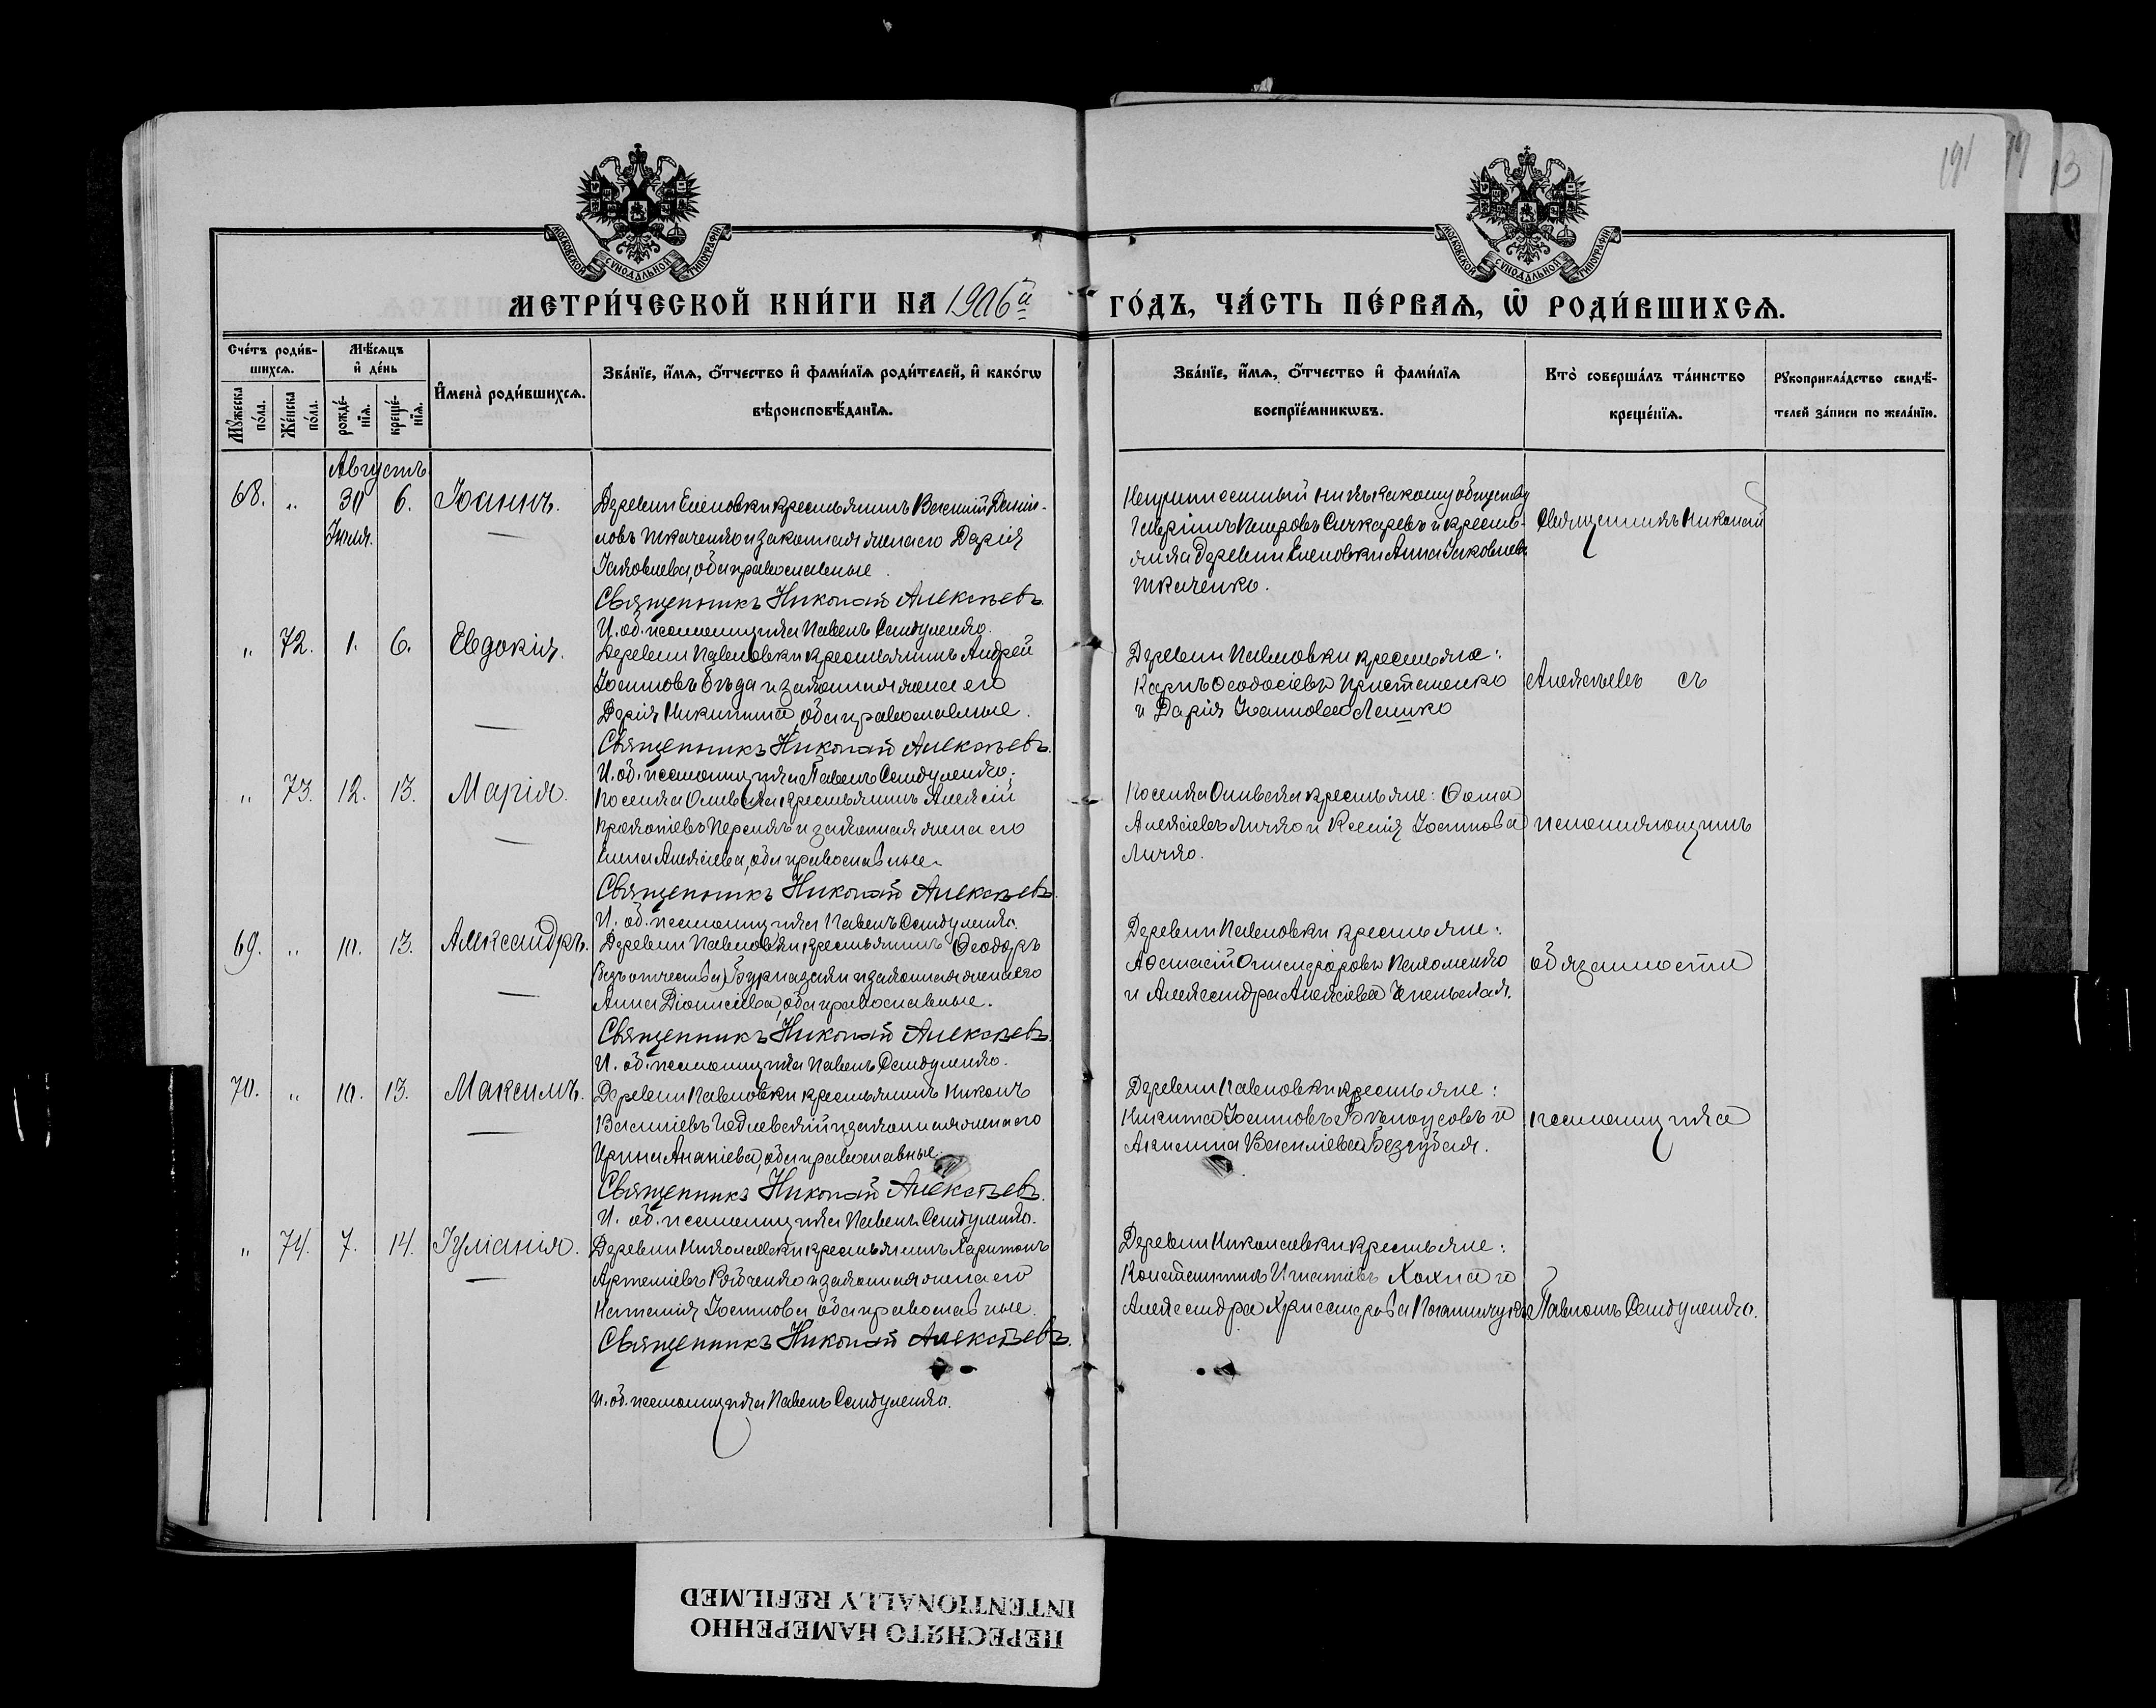 191
МОСКОВСКОЙ СѴНОДАЛЬНОЙ ТИПОГРАФІИ
МОСКОВСКОЙ СѴНОДАЛЬНОЙ ТИПОГРАФІИ
МЕТРИ́ЧЕСКОЙ КНИ́ГИ НА 1906й ГО́ДЪ, ЧА́СТЬ ПЕ́РВАѦ, Ѿ РОДИ́ВШИХСѦ.
Сче́тъ роди́вшихсѧ.
Мꙋ́жеска по́ла.
Же́нска по́ла.
Мѣ́сѧцъ и҆ де́нь
рожде́нїѧ.
креще́нїѧ.
И҆мена̀ роди́вшихсѧ.
Зва́нїе, и҆́мѧ, ѻ҆́тчество и҆ фами́лїѧ роди́телей, и҆ како́гѡ
вѣроисповѣ́данїѧ.
Зва́нїе, и҆́мѧ, ѻ҆́тчество и҆ фами́лїѧ
воспрїе́мникѡвъ.
Кто̀ соверша́лъ та́инство
креще́нїѧ.
Рꙋкоприкла́дство свидѣ́-
телей за́писи по жела́нїю.
Августъ
68. „ 30 6. Іоаннъ.
Іюля.
Деревни Еленовки крестьянинъ Василій Данія-
ловъ Ткаченко и законная жена его Дарія
Іаковлева, оба православные.
Священникъ Николай Алексѣевъ.
И. об. псаломщика Павелъ Сандуленко.
Неприписанный ни къ какому обществу
Петровъ Сичкаревъ и кресть-
янка деревни Еленовки Анна Іаковлева
Ткаченко.
Священникъ Николай
„ 72. 1. 6. Евдокія.
Деревни Павловки крестьянинъ Андрей
Іоанновъ Бѣда и законная жена его
Дарія Никитина, оба православные.
Священникъ Николай Алексѣевъ.
И. об. псаломщика Павелъ Сандуленко.
Деревни Павловки крестьяне:
Карпъ Ѳеодосіевъ Пристаненко
и Дарія Іоаннова Ляшко
Алексѣевъ съ
„ 73. 12. 13. Марія.
Поселка крестьянинъ Алексій
и законная жена его
Алексіева, оба православные.
Священникъ Николай Алексѣевъ.
И. об. псаломщика Павелъ Сандуленко.
Поселка крестьяне: Ѳома
Алексіевъ Личко и Ксенія Іоаннова
Личко.
исполняющимъ
69. „ 10. 13. Александръ.
Деревни Павловки крестьянинъ Ѳеодоръ
(безъ отчества) и законная жена его
Анна Діонисіева, оба православные.
Священникъ Николай Алексѣевъ.
И. об. псаломщика Павелъ Сандуленко.
Деревни Павловки крестьяне:
и Александра Алексіева
обязанности
70. „ 10. 13. Максимъ.
Деревни Павловки крестьянинъ Никонъ
Василіевъ и законная жена его
Ирина Ананіева, оба православные.
Священникъ Николай Алексѣевъ.
И. об. псаломщика Павелъ Сандуленко.
Деревни Павловки крестьяне:
Никита Іоанновъ Бѣлоусовъ и
Акилина Василіева Беззубая.
псаломщика
„ 74. 7. 14. Іуліанія.
Деревни Николаевки крестьянинъ Харитонъ
Артеміевъ Рябченко и законная жена его
Наталія Іоаннова, оба православные.
Священникъ Николай Алексѣевъ.
И. об. псаломщика Павелъ Сандуленко.
Деревни Николаевки крестьяне:
Константинъ Игнатіевъ Хохла и
Александра
Павломъ Сандуленко.
ПЕРЕСНЯТО НАМЕРЕННО
INTENTIONALLY REFILMED